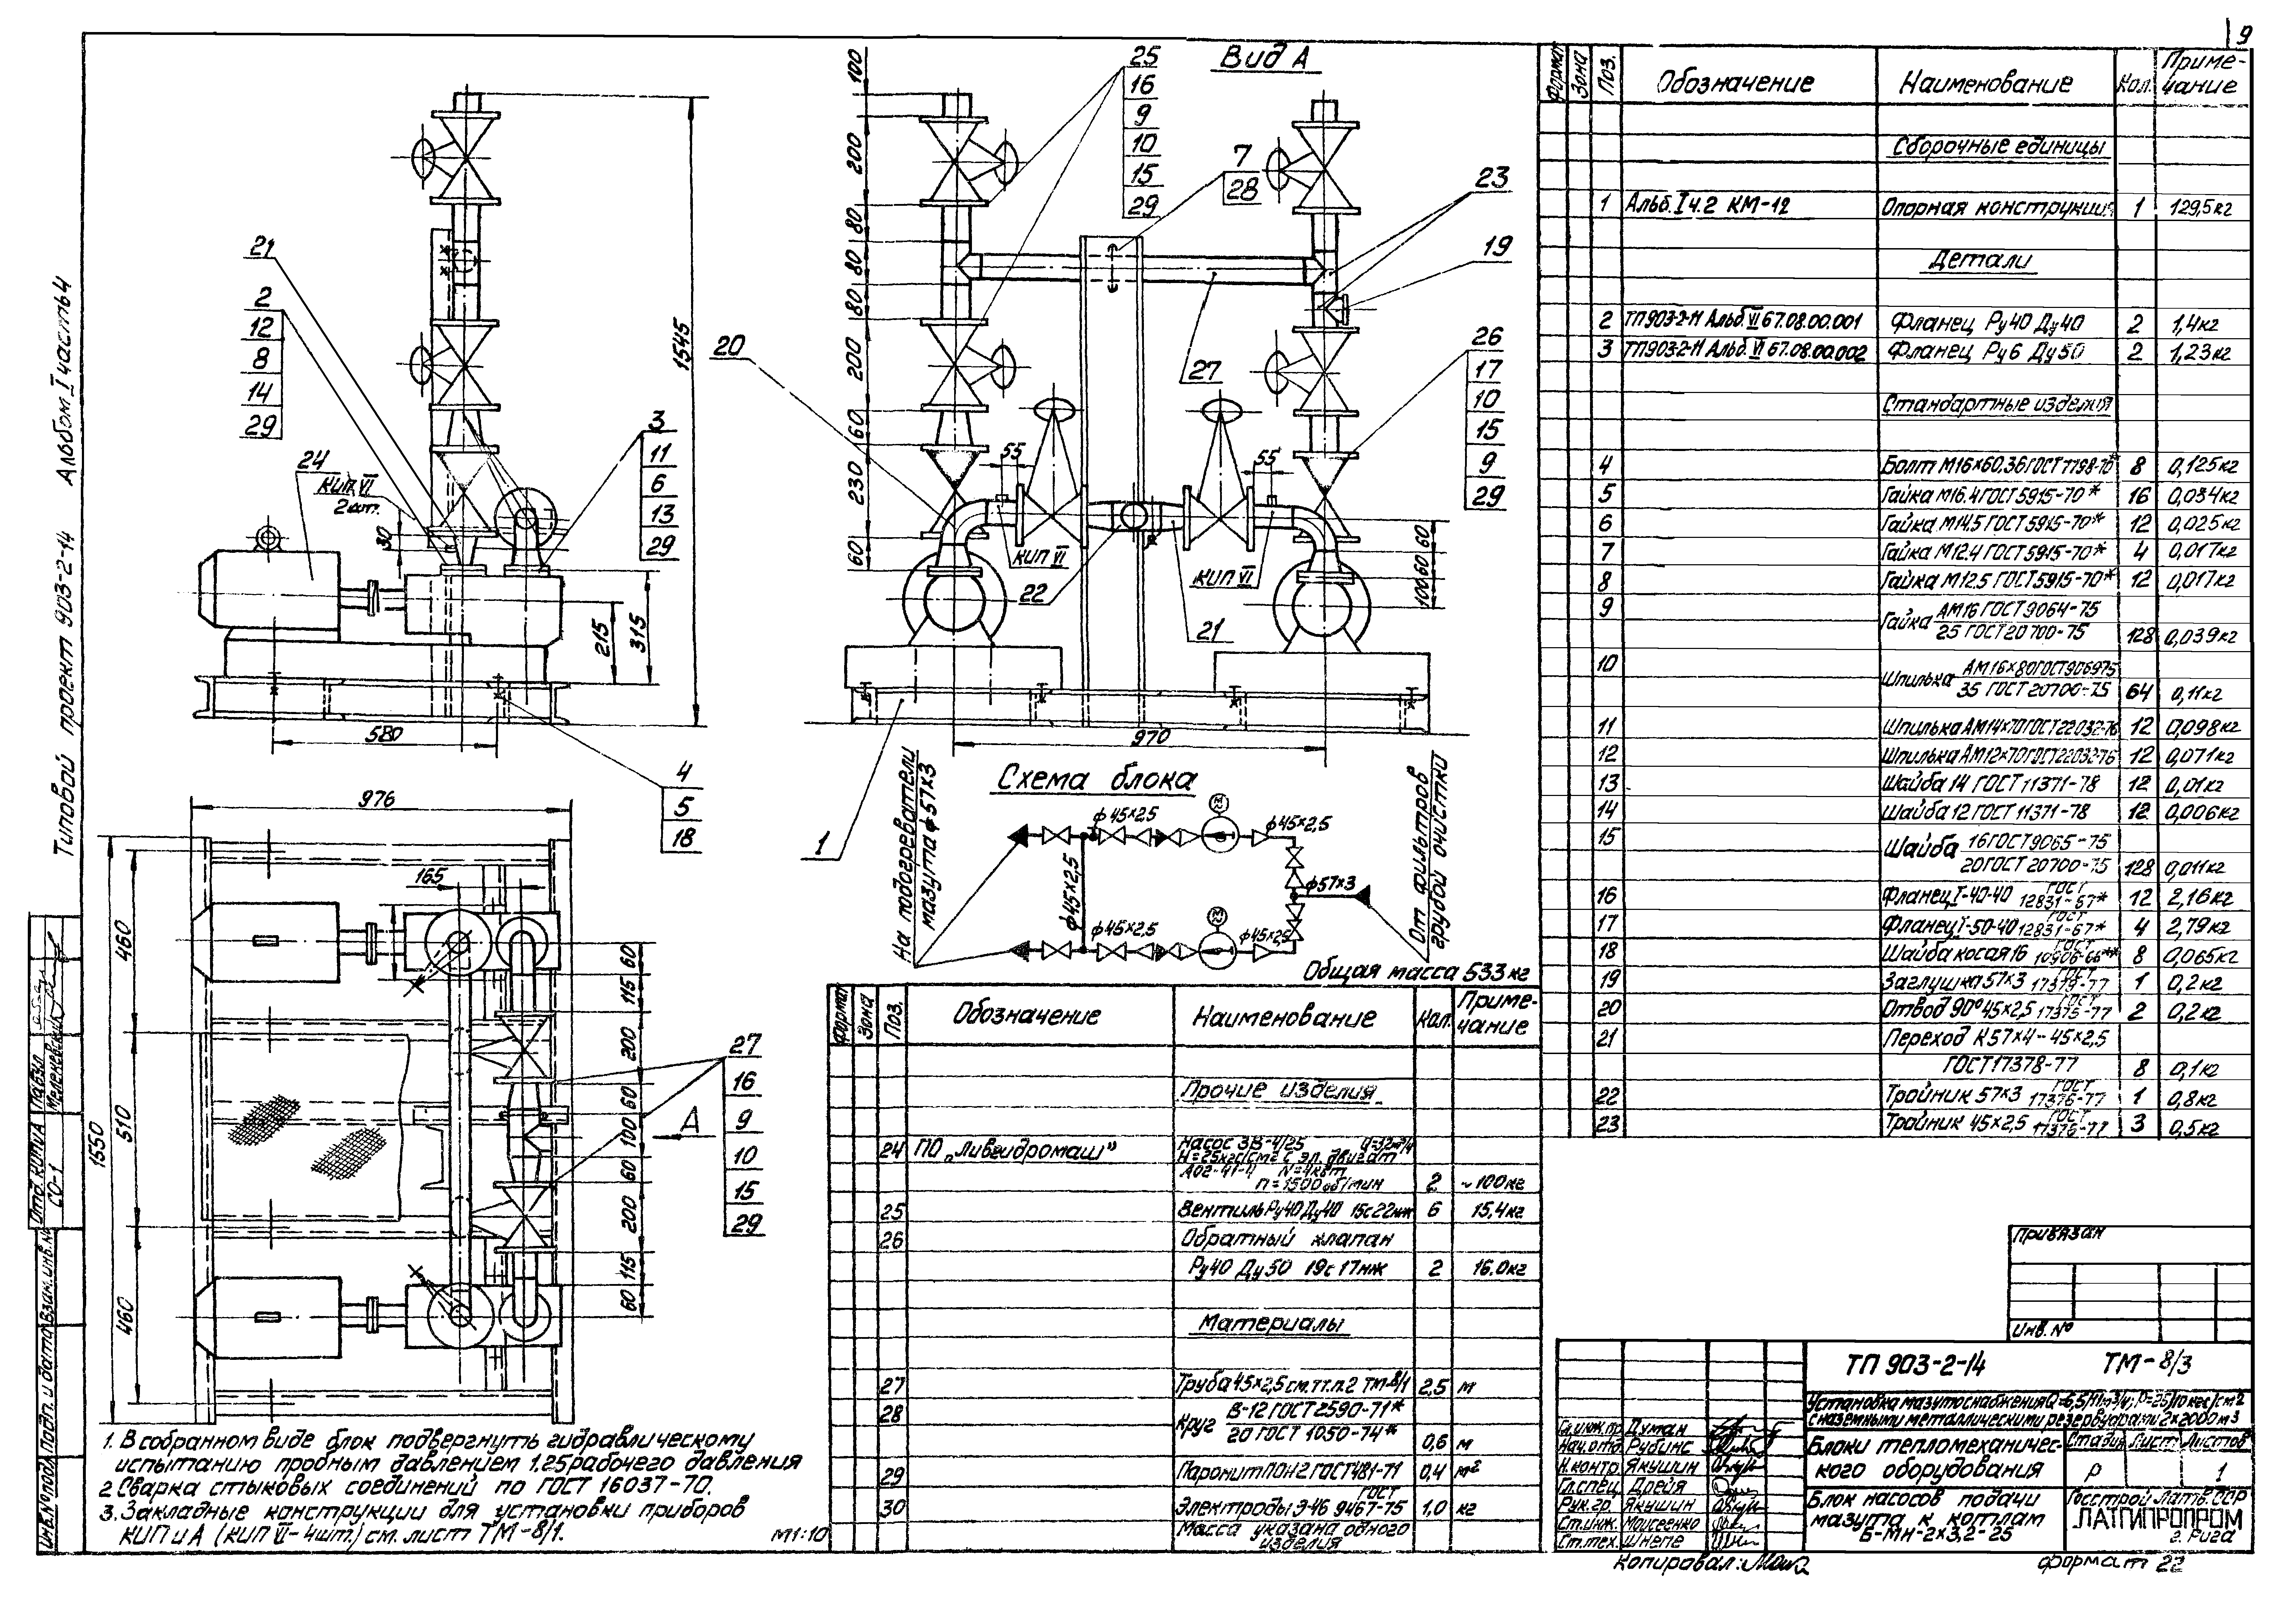 9
Типовой проект 903-2-14 Альбом I часть 4
Вид А
25
16
9
10
15
29
7
28
23
19
21
2
12
8
14
29
24
КИП VI
2 шт.
30
3
11
6
13
29
215
315
1545
580
4
5
18
100
200
80
80
80
200
60
230
60
20
55
55
26
17
10
15
9
29
27
КИП VI
КИП VI
22
21
60
60
100
1
970
976
165
1550
460
510
460
60
115
200
60
100
60
200
115
60
А
27
16
9
10
15
29
Схема блока
На подогреватели
мазута ф57×3
От фильтров
грубой очистки
ф45×2,5
ф45×2,5
ф45×2,5
ф57×3
ф45×2,5
ф45×2,5
Общая масса 533 кг
Формат Зона Поз. Обозначение Наименование Кол. Приме-
чание
Сборочные единицы
1 Альб. I ч.2 КМ-12 Опорная конструкция 1 129,5кг
Детали
2 ТП903-2-11 Альб. VI 67.08.00.001 Фланец Ру40 Ду40 2 1,4кг
3 ТП903-2-11 Альб. VI 67.08.00.002 Фланец Ру6 Ду50 2 1,23кг
Стандартные изделия
4 Болт М16×60.36 ГОСТ 7798-70* 8 0,125кг
5 Гайка М16.4 ГОСТ 5915-70* 16 0,034кг
6 Гайка М14.5 ГОСТ 5915-70* 12 0,025кг
7 Гайка М12.4 ГОСТ 5915-70* 4 0,017кг
8 Гайка М12.5 ГОСТ 5915-70* 12 0,017кг
9 Гайка АМ16 ГОСТ 9064-75
25 ГОСТ 20700-75 128 0,039кг
10 Шпилька АМ16×80 ГОСТ 9069-75
35 ГОСТ 20700-75 64 0,11кг
11 Шпилька АМ14×70 ГОСТ 22032-76 12 0,098кг
12 Шпилька АМ12×70 ГОСТ 22032-76 12 0,071кг
13 Шайба 14 ГОСТ 11371-78 12 0,01кг
14 Шайба 12 ГОСТ 11371-78 12 0,006кг
15 Шайба 16 ГОСТ 9065-75
20 ГОСТ 20700-75 128 0,011кг
16 Фланец I-40-40 ГОСТ 12831-67* 12 2,16кг
17 Фланец I-50-40 ГОСТ 12831-67* 4 2,79кг
18 Шайба косая 16 ГОСТ 10906-66** 8 0,065кг
19 Заглушка 57×3 ГОСТ 17379-77 1 0,2кг
20 Отвод 90° 45×2,5 ГОСТ 17375-77 2 0,2кг
21 Переход К 57×4-45×2,5
ГОСТ 17378-77 8 0,1кг
22 Тройник 57×3 ГОСТ 17376-77 1 0,8кг
23 Тройник 45×2,5 ГОСТ 17376-77 3 0,5кг
Формат Зона Поз. Обозначение Наименование Кол. Приме-
чание
Прочие изделия
24 ПО „Ливгидромаш" Насос 3В-4/25
Н=25кгс/см2 с эл. двигат
АО2-41-4 N=4квт
n=1500 об/мин 2 ~100кг
25 Вентиль Ру40 Ду40 15с22нж 6 15,4кг
26 Обратный клапан
Ру40 Ду50 19с17нж 2 16.0кг
Материалы
27 Труба 45×2,5 см. тт. п.2 ТМ-8/1 2,5 м
28 Круг В-12 ГОСТ 2590-71*
20 ГОСТ 1050-74* 0,6 м
29 Паронит ПОН 2 ГОСТ 481-71 0,4 м2
30 Электроды Э-46 ГОСТ 9467-75 1,0 кг
Масса указана одного
изделия
1. В собранном виде блок подвергнуть гидравлическому
испытанию пробным давлением 1,25 рабочего давления
2 Сварка стыковых соединений по ГОСТ 16037-70.
3. Закладные конструкции для установки приборов
КИП и А (КИП VI-4шт.) см. лист ТМ-8/1.
М1:10
Отд. КИП и А
СО-1
Мелехевский
Инв.№ подл. Подп. и дата Взам. инв. №
Привязан
Инв. №
ТП 903-2-14 ТМ-8/3
Установка мазутоснабжения Q=6,5/11м3/ч; Р=25/10 кгс/см2
с наземными металлическими резервуарами 2×2000м3
Гл.инж.пр Думан
Нач.отд. Рубинс
Н.контр. Якушин
Гл.спец. Дрейя
Рук.гр. Якушин
Ст.инж. Моисеенко
Ст.тех. Шнепе
Блоки тепломеханичес-
кого оборудования
Стадия Лист Листов
Р 1
Блок насосов подачи
мазута к котлам
Б-МН-2×3,2-25
Госстрой Латв. ССР
ЛАТГИПРОПРОМ
г. Рига
Копировал:
формат 22